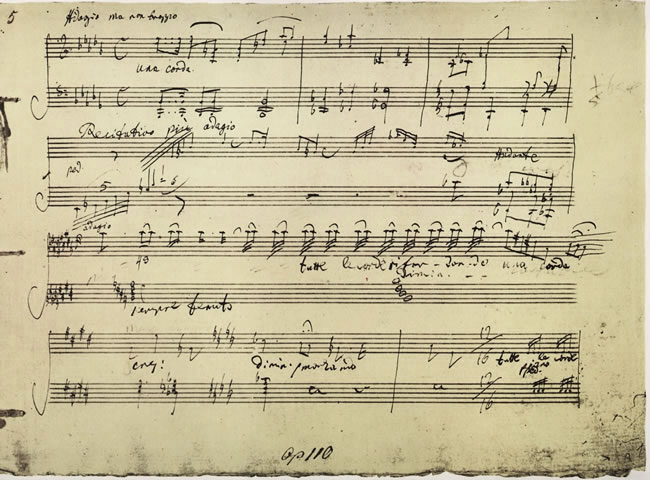 5 Adagio ma non troppo
una corda
Recitativo più adagio
ped
Andante
5
adagio
tutte le corde
dimin. una corda
sempre tenuto
cresc: dimin. 12/16 tutte le corde
12/16
Op 110